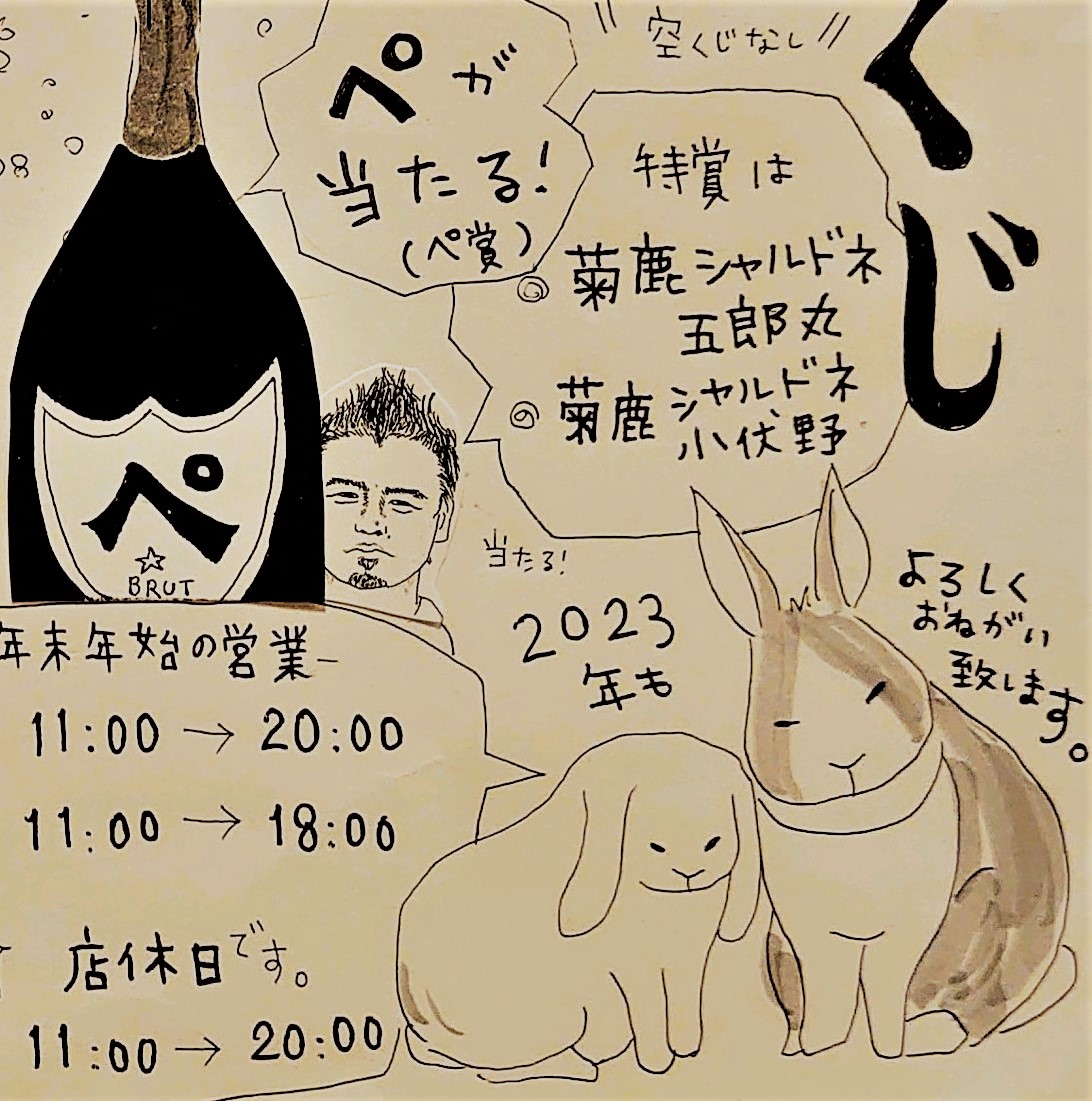 くじ
〃空くじなし〃
ペが
当たる!
(ペ賞)
特賞は
◎菊鹿シャルドネ
五郎丸
◎菊鹿シャルドネ
小伏野
当たる!
ペ
BRUT
2023
年も
よろしく
おねがい
致します。
年末年始の営業
11:00→20:00
11:00→18:00
店休日です。
11:00→20:00